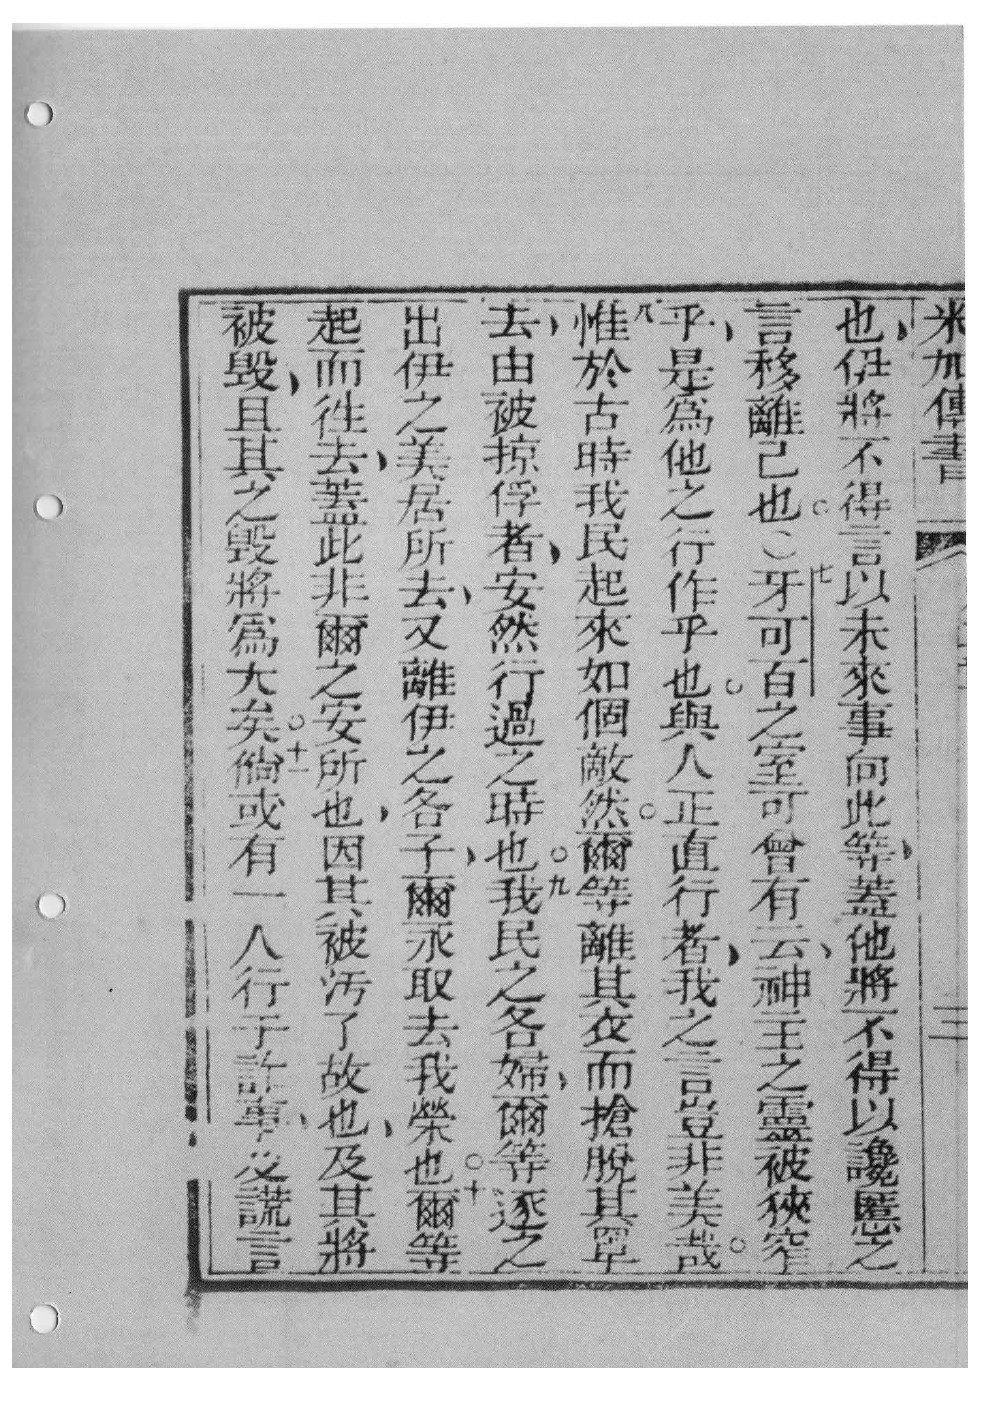 米加傳書 三
也伊將不得言以未來事向此等蓋他將不得以讒慝之
言移離己也。)七牙可百之室可曾有云神主之靈被狹窄
乎是為他之行作乎也。與人正直行者我之言豈非美哉。
八惟於古時我民起來如個敵然。爾等離其衣而搶脫其單
去由被掠俘者安然行過之時也。九我民之各婦爾等逐之
出伊之美居所去又離伊之各子爾永取去我榮也。十爾等
起而徃去蓋此非爾之安所也因其被汚了故也及其將
被毀且其之毀將爲大矣。十一倘或有一人行于許事及謊言